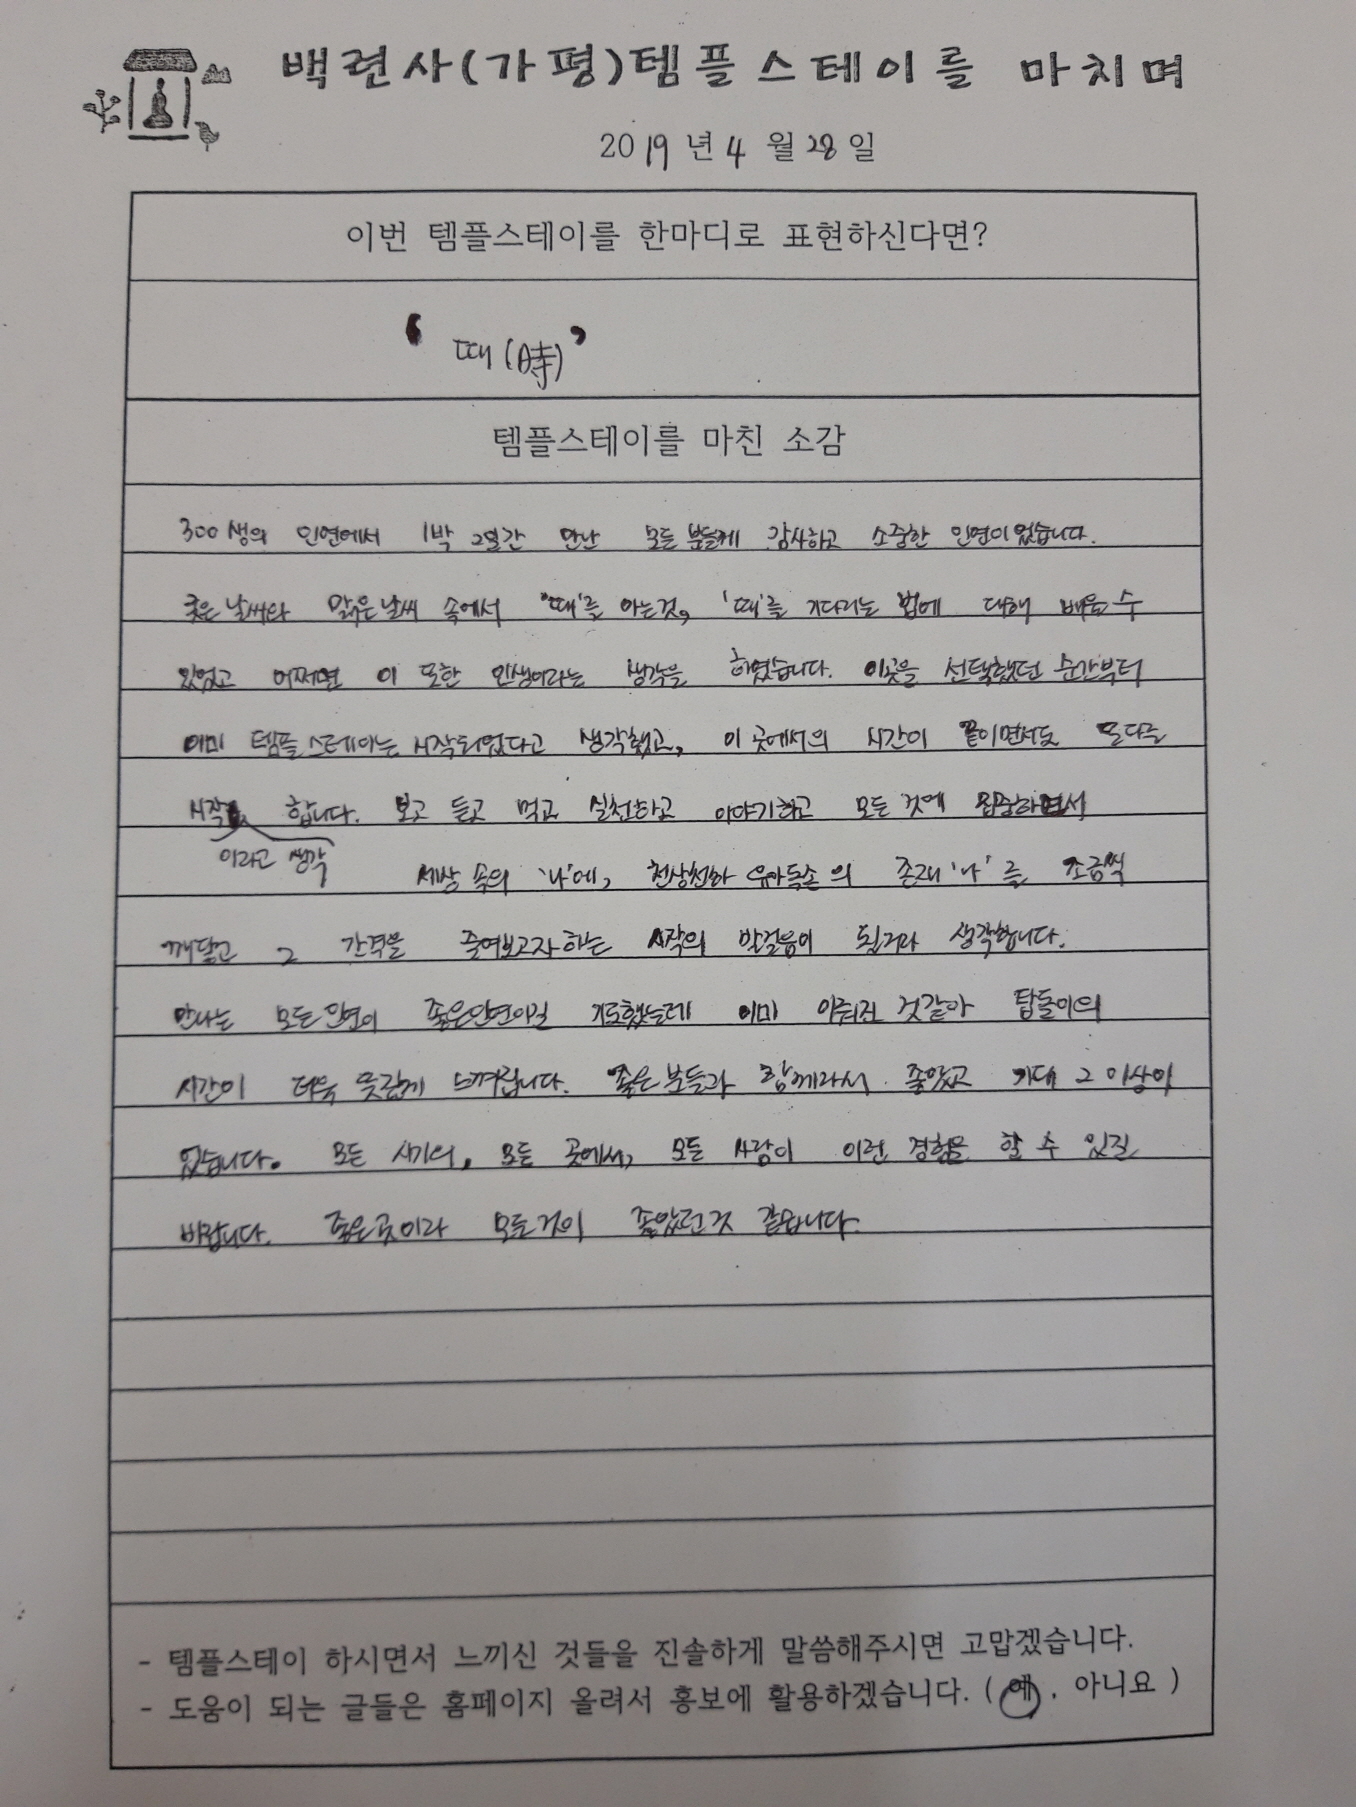 백련사(가평)템플스테이를 마치며
2019년 4월 28일
이번 템플스테이를 한마디로 표현하신다면?
‘때(時)’
템플스테이를 마친 소감
300생의 인연에서 1박 2일간 만난 모든 분들께 감사하고 소중한 인연이었습니다.
궂은 날씨와 맑은 날씨 속에서 '때'를 아는것, '때'를 기다리는 법에 대해 배울 수
있었고 어쩌면 이 또한 인생이라는 생각을 하였습니다. 이곳을 선택했던 순간부터
이미 템플스테이는 시작되었다고 생각했고, 이 곳에서의 시간이 끝이면서도 또다른
시작 합니다. 보고 듣고 먹고 실천하고 이야기하고 모든 것에 집중하면서
이라고 생각
세상 속의 '나'에, 천상천하 유아독존의 존재 '나'를 조금씩
깨닫고 그 간격을 줄여보고자 하는 시작의 발걸음이 된거라 생각합니다.
만나는 모든 인연이 좋은인연이길 기도했는데 이미 이뤄진 것같아 탑돌이의
시간이 더욱 뜻깊게 느껴집니다. 좋은 분들과 함께라서 좋았고 기대 그 이상이
었습니다. 모든 시기의, 모든 곳에서, 모든 사람이 이런 경험을 할 수 있길
바랍니다. 좋은 곳이라 모든것이 좋았던것 같습니다.
- 템플스테이 하시면서 느끼신 것들을 진솔하게 말씀해주시면 고맙겠습니다.
- 도움이 되는 글들은 홈페이지 올려서 홍보에 활용하겠습니다. ( 예 , 아니요 )